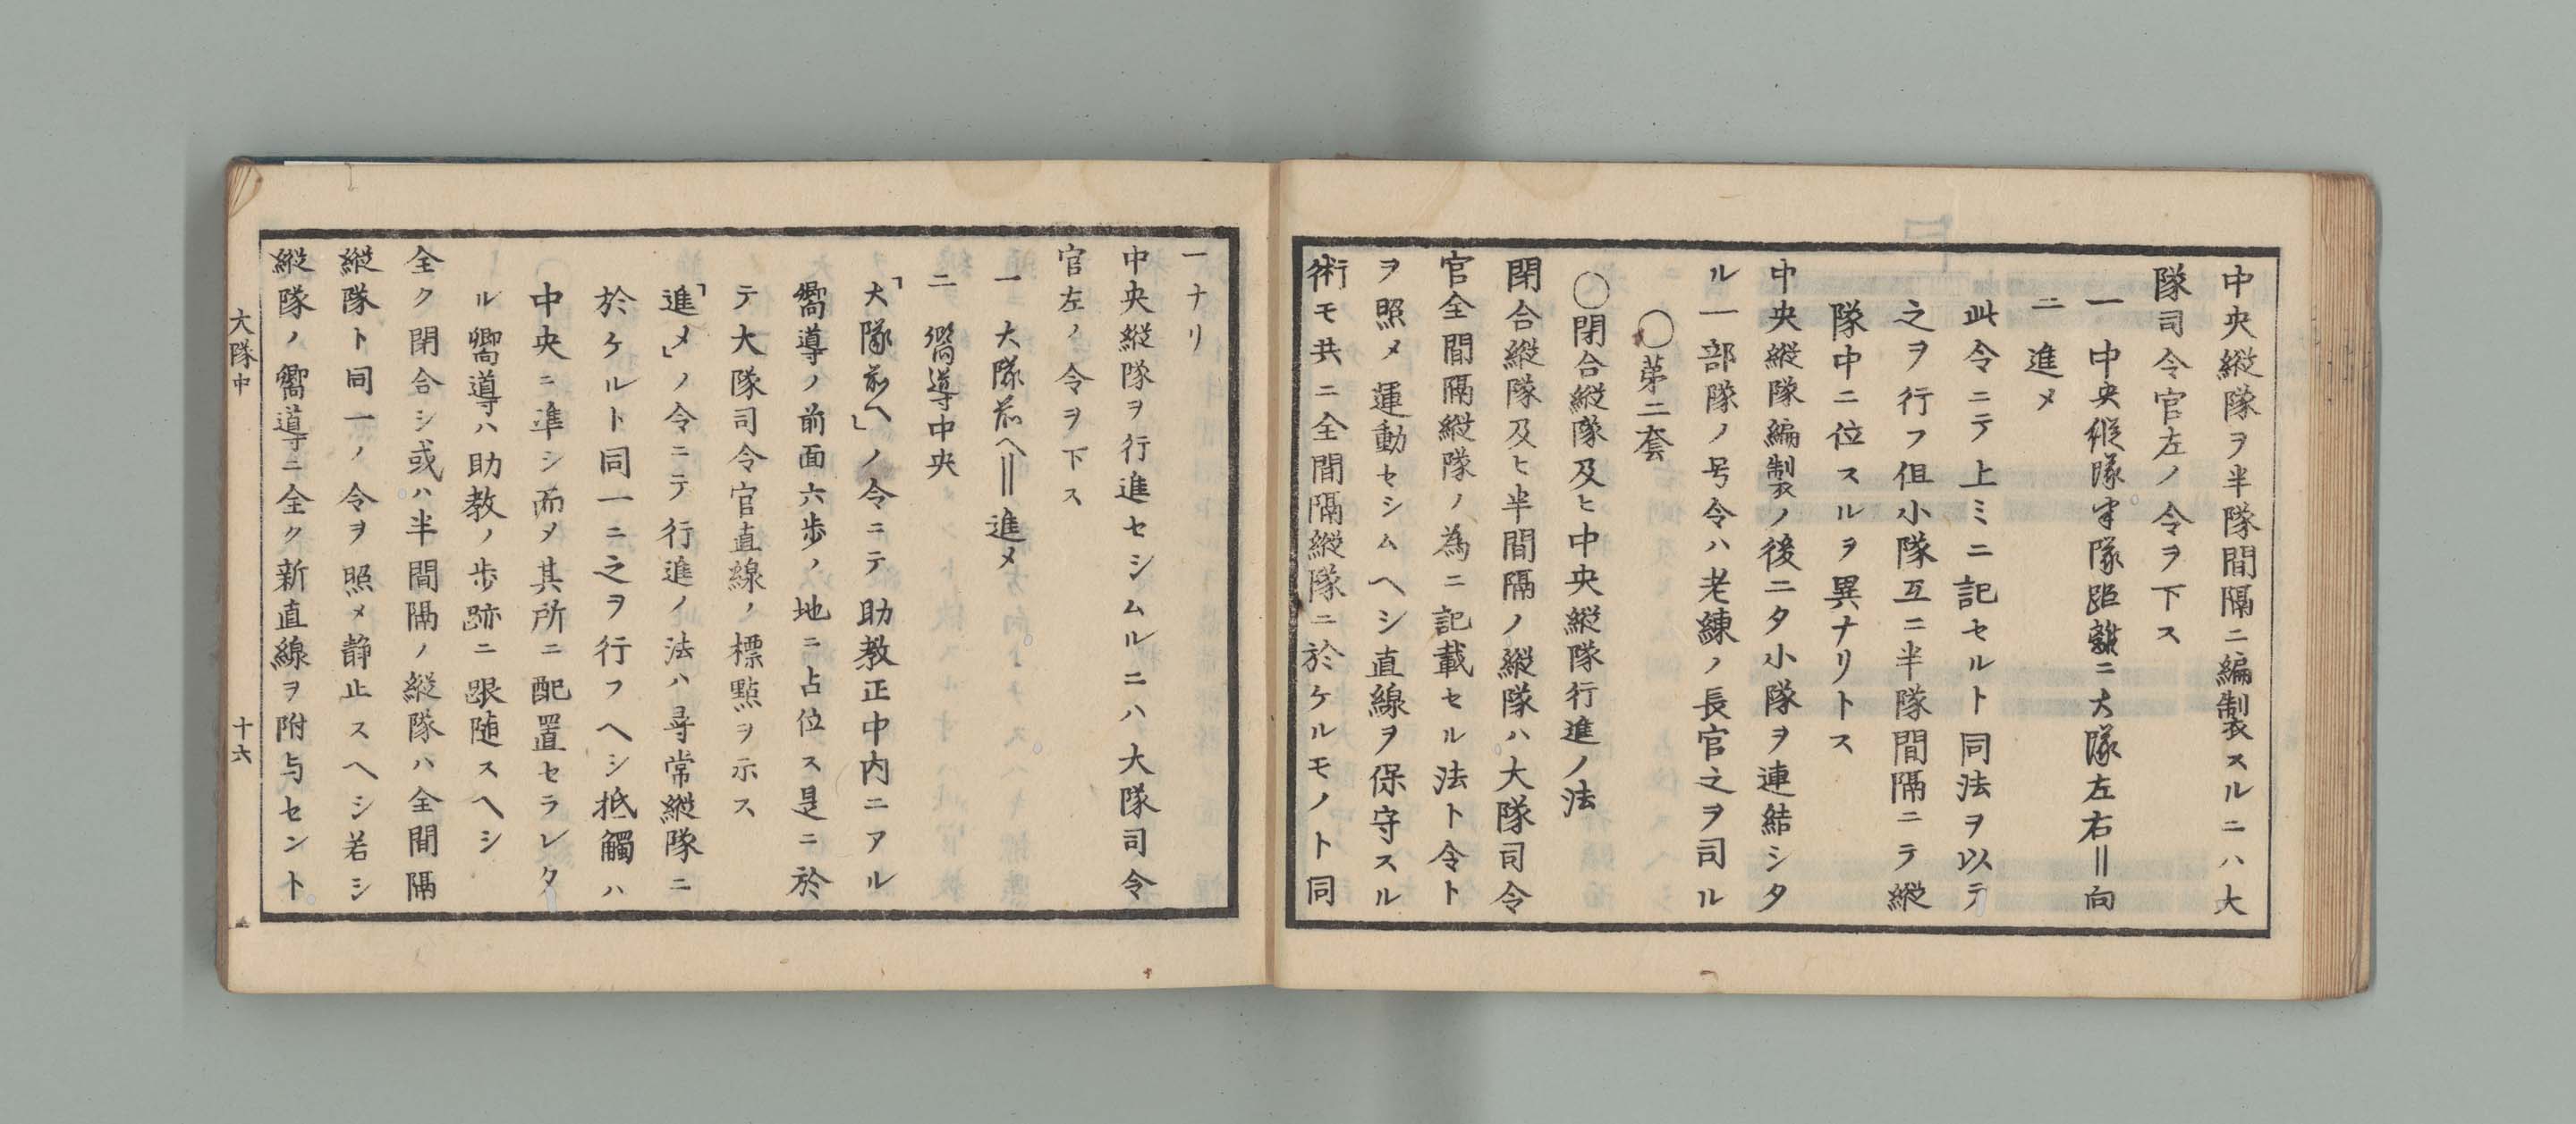 中央縦隊ヲ半隊間隔ニ編製スルニハ大
隊司令官左ノ令ヲ下ス
一 中央縦隊半隊距離ニ大隊左右〢向
二 進メ
此令ニテ上ミニ記セルト同法ヲ以テ
之ヲ行フ但小隊互ニ半隊間隔ニテ縦
隊中ニ位スルヲ異ナリトス
中央縦隊編製ノ後ニタ小隊ヲ連結シタ
ル一部隊ノ号令ハ老練ノ長官之ヲ司ル
〇第二套
〇閉合縦隊及ヒ中央縦隊行進ノ法
閉合縦隊及ヒ半間隔ノ縦隊ハ大隊司令
官全間隔縦隊ノ為ニ記載セル法ト令ト
ヲ照メ運動セシムヘシ直線ヲ保守スル
術モ共ニ全間隔縦隊ニ於ケルモノト同
一ナリ
中央縦隊ヲ行進セシムルニハ大隊司令
官左ノ令ヲ下ス
一 大隊前ヘ〢進メ
二 嚮導中央
「大隊前ヘ」ノ令ニテ助教正中内ニアル
嚮導ノ前面六歩ノ地ニ占位ス是ニ於
テ大隊司令官直線ノ標點ヲ示ス
「進メ」ノ令ニテ行進ノ法ハ尋常縦隊ニ
於ケルト同一ニ之ヲ行フヘシ抵觸ハ
中央ニ準シ而ヲ其所ニ配置セラレタ
ル嚮導ハ助教ノ歩跡ニ跟随スヘシ
全ク閉合シ或ハ半間隔ノ縦隊ハ全間隔
縦隊ト同一ノ令ヲ照メ静止スヘシ若シ
縦隊ノ嚮導ニ全ク新直線ヲ附与セント
大隊中
十六